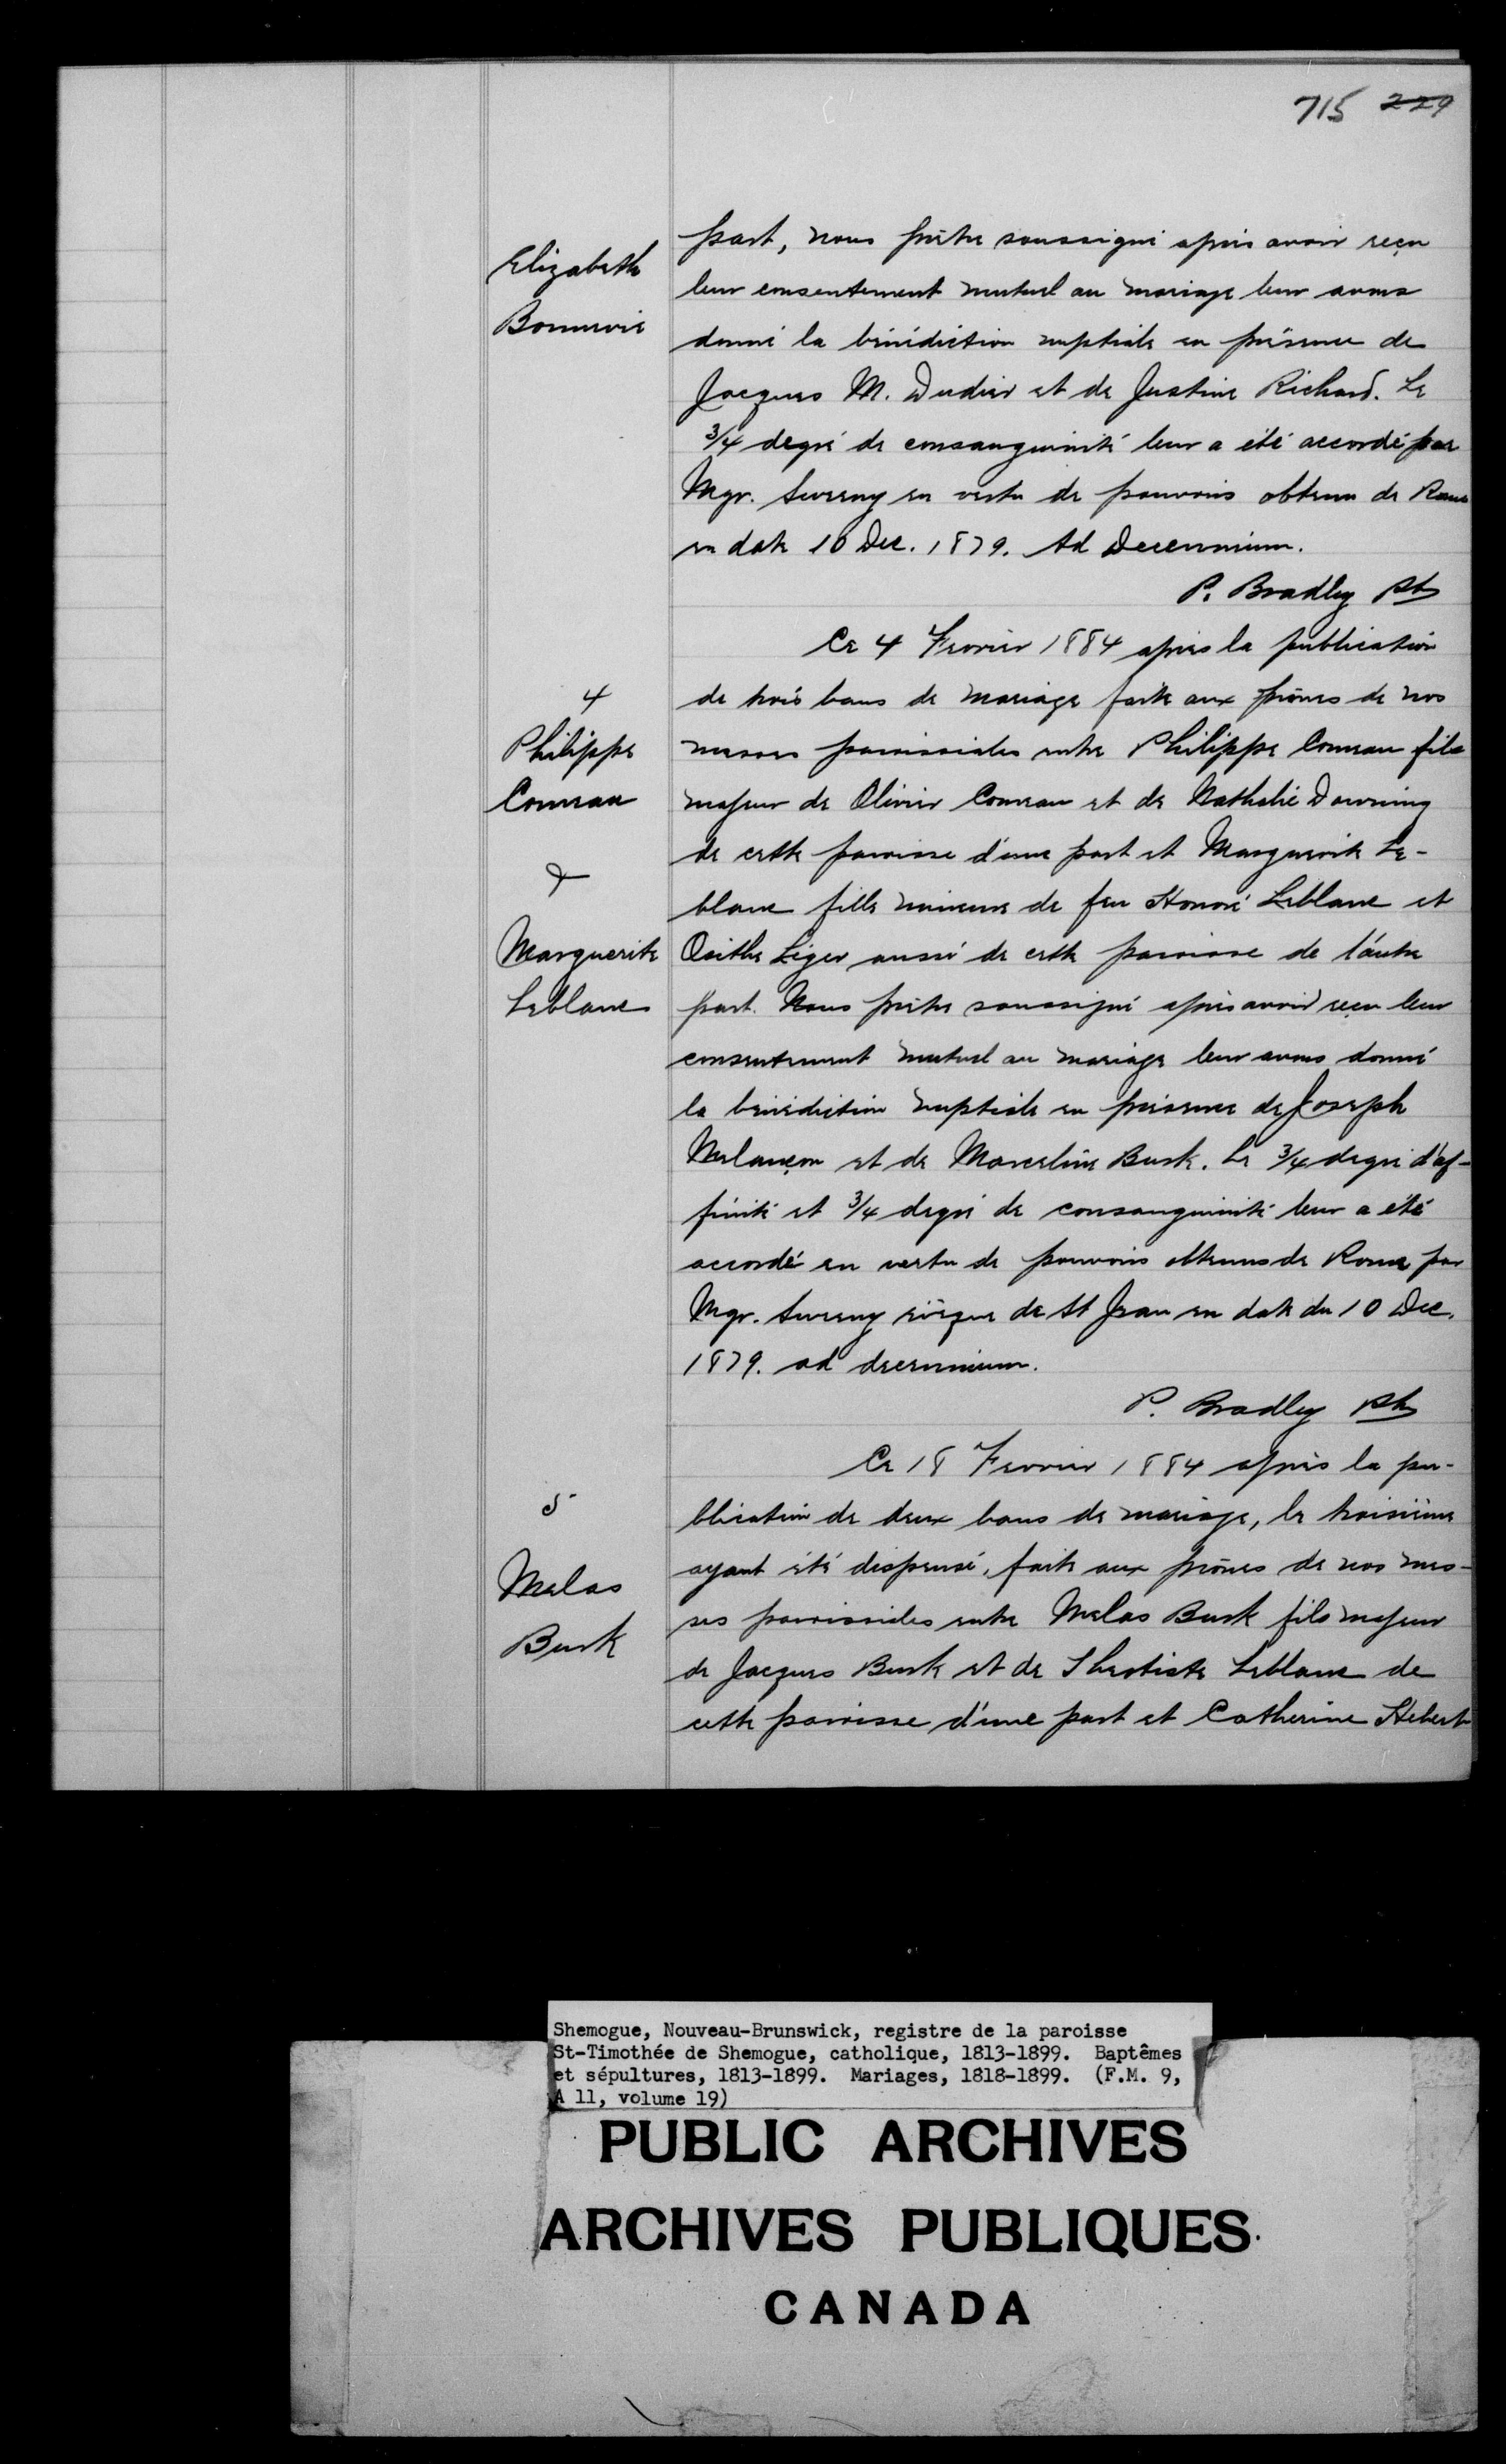 715 229
Elizabeth
Bonnevie
part, nous prêtre soussigné après avoir reçu
leur consentement mutuel au mariage leur avons
donné la bénédiction nuptiale en présence de
Jacques M. Dudier et de Justine Richard. Le
3/4 degré de consanguinité leur a été accordé par
Mgr. Sweeny en vertu de pouvoirs obtenu de Rome
en date 10 Dec. 1879. Ad Decennium.
P. Bradley Pt
Ce 4 Fevrier 1884 après la publication
4
Philippe
Comeau
&
Marguerite
Leblanc
de trois bans de mariage faite aux prônes de nos
messes paroissiales entre Philippe Comeau fils
majeur de Olivier Comeau et de Nathalie Downing
de cette paroisse d'une part et Marguerite Le-
blanc fille mineure de feu Honoré Leblanc et
Osithe Léger aussi de cette paroisse de l'autre
part. Nous prêtre soussigné après avoir reçu leur
consentement mutuel au mariage leur avons donné
la bénédiction nuptiale en présence de Joseph
Melançon et de Marceline Burk. Le 3/4 degré d'af-
finité et 3/4 degré de consanguinité leur a été
accordé en vertu de pouvoirs obtenus de Rome par
Mgr. Sweeny évêque de St Jean en date du 10 Dec.
1879. ad decennium.
P. Bradley Pt
Ce 18 Fevrier 1884 après la pu-
5
Melas
Burk
blication de deux bans de mariage, le troisième
ayant été dispensé, faite aux prônes de nos mes-
ses paroissiales entre Melas Burk fils majeur
de Jacques Burk et de Theotiste Leblanc de
cette paroisse d'une part et Catherine Hebert
Shemogue, Nouveau-Brunswick, registre de la paroisse
St-Timothée de Shemogue, catholique, 1813-1899. Baptêmes
et sépultures, 1813-1899. Mariages, 1818-1899. (F.M. 9,
A 11, volume 19)
PUBLIC ARCHIVES
ARCHIVES PUBLIQUES
CANADA